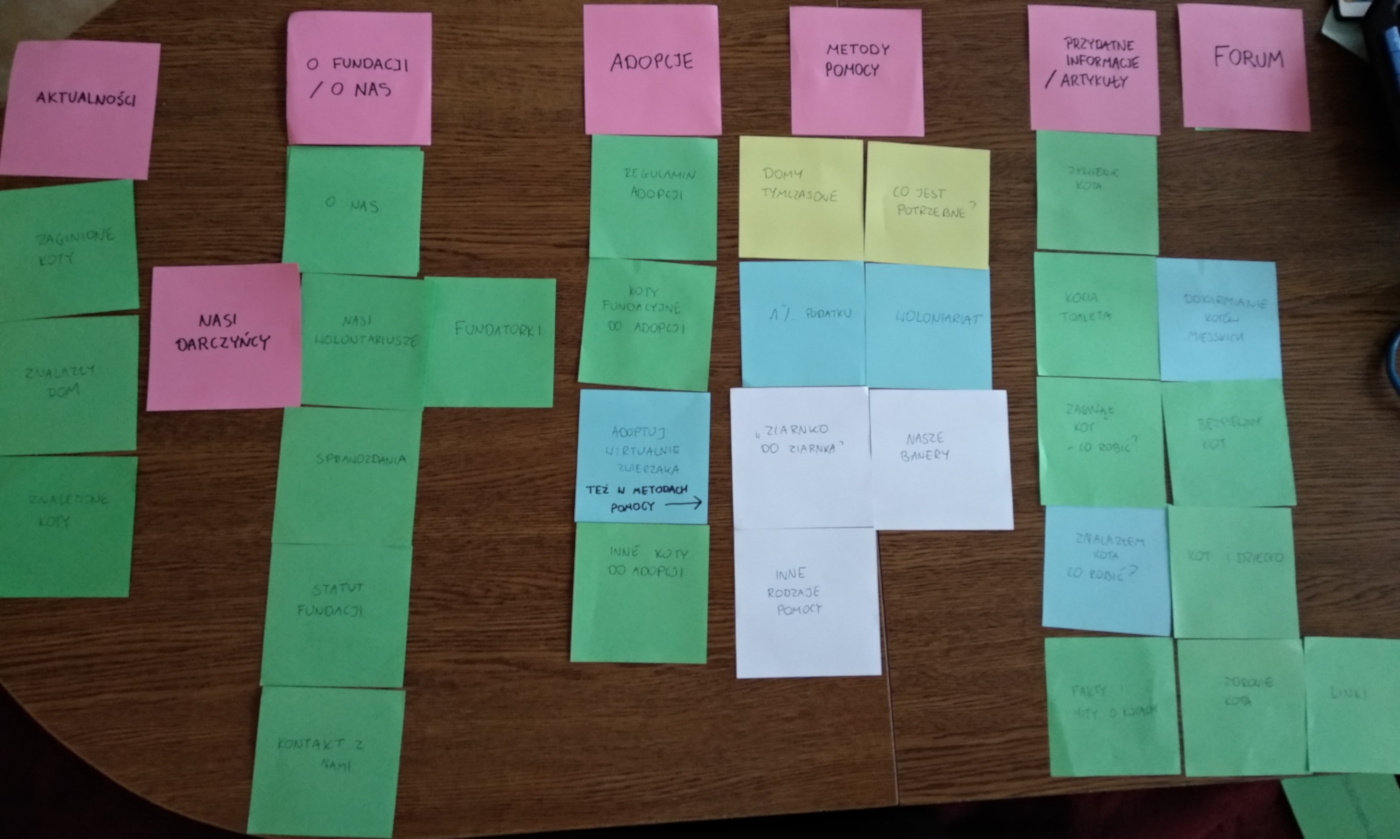 AKTUALNOŚCI
ZAGINIONE
KOTY
ZNALAZŁY
DOM
ZNALEZIONE
KOTY
O FUNDACJI
/ O NAS
O NAS
NASI
DARCZYŃCY
NASI
WOLONTARIUSZE
FUNDATORKI
SPRAWOZDANIA
STATUT
FUNDACJI
KONTAKT Z
NAMI
ADOPCJE
REGULAMIN
ADOPCJI
KOTY
FUNDACYJNE
DO ADOPCJI
ADOPTUJ
WIRTUALNIE
ZWIERZAKA
TEŻ W METODACH
POMOCY →
INNE KOTY
DO ADOPCJI
METODY
POMOCY
DOMY
TYMCZASOWE
CO JEST
POTRZEBNE?
1% PODATKU
WOLONTARIAT
„ZIARNKO
DO ZIARNKA"
NASZE
BANERY
INNE
RODZAJE
POMOCY
PRZYDATNE
INFORMACJE
/ ARTYKUŁY
ŻYWIENIE
KOTA
KOCIA
TOALETA
DOKARMIANIE
KOTÓW
MIEJSKICH
ZAGINĄŁ
KOT
- CO ROBIĆ?
BEZPIECZNY
KOT
ZNALAZŁEM
KOTA
CO ROBIĆ?
KOT I DZIECKO
FAKTY I
MITY O KOTACH
ZDROWIE
KOTA
LINKI
FORUM